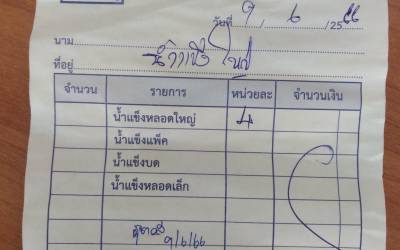 วันที่ 9 / 6 / 2566
นาม
ที่อยู่
จำนวน รายการ หน่วยละ จำนวนเงิน
น้ำแข็งหลอดใหญ่ 4
น้ำแข็งแพ็ค
น้ำแข็งบด
น้ำแข็งหลอดเล็ก
9/6/66